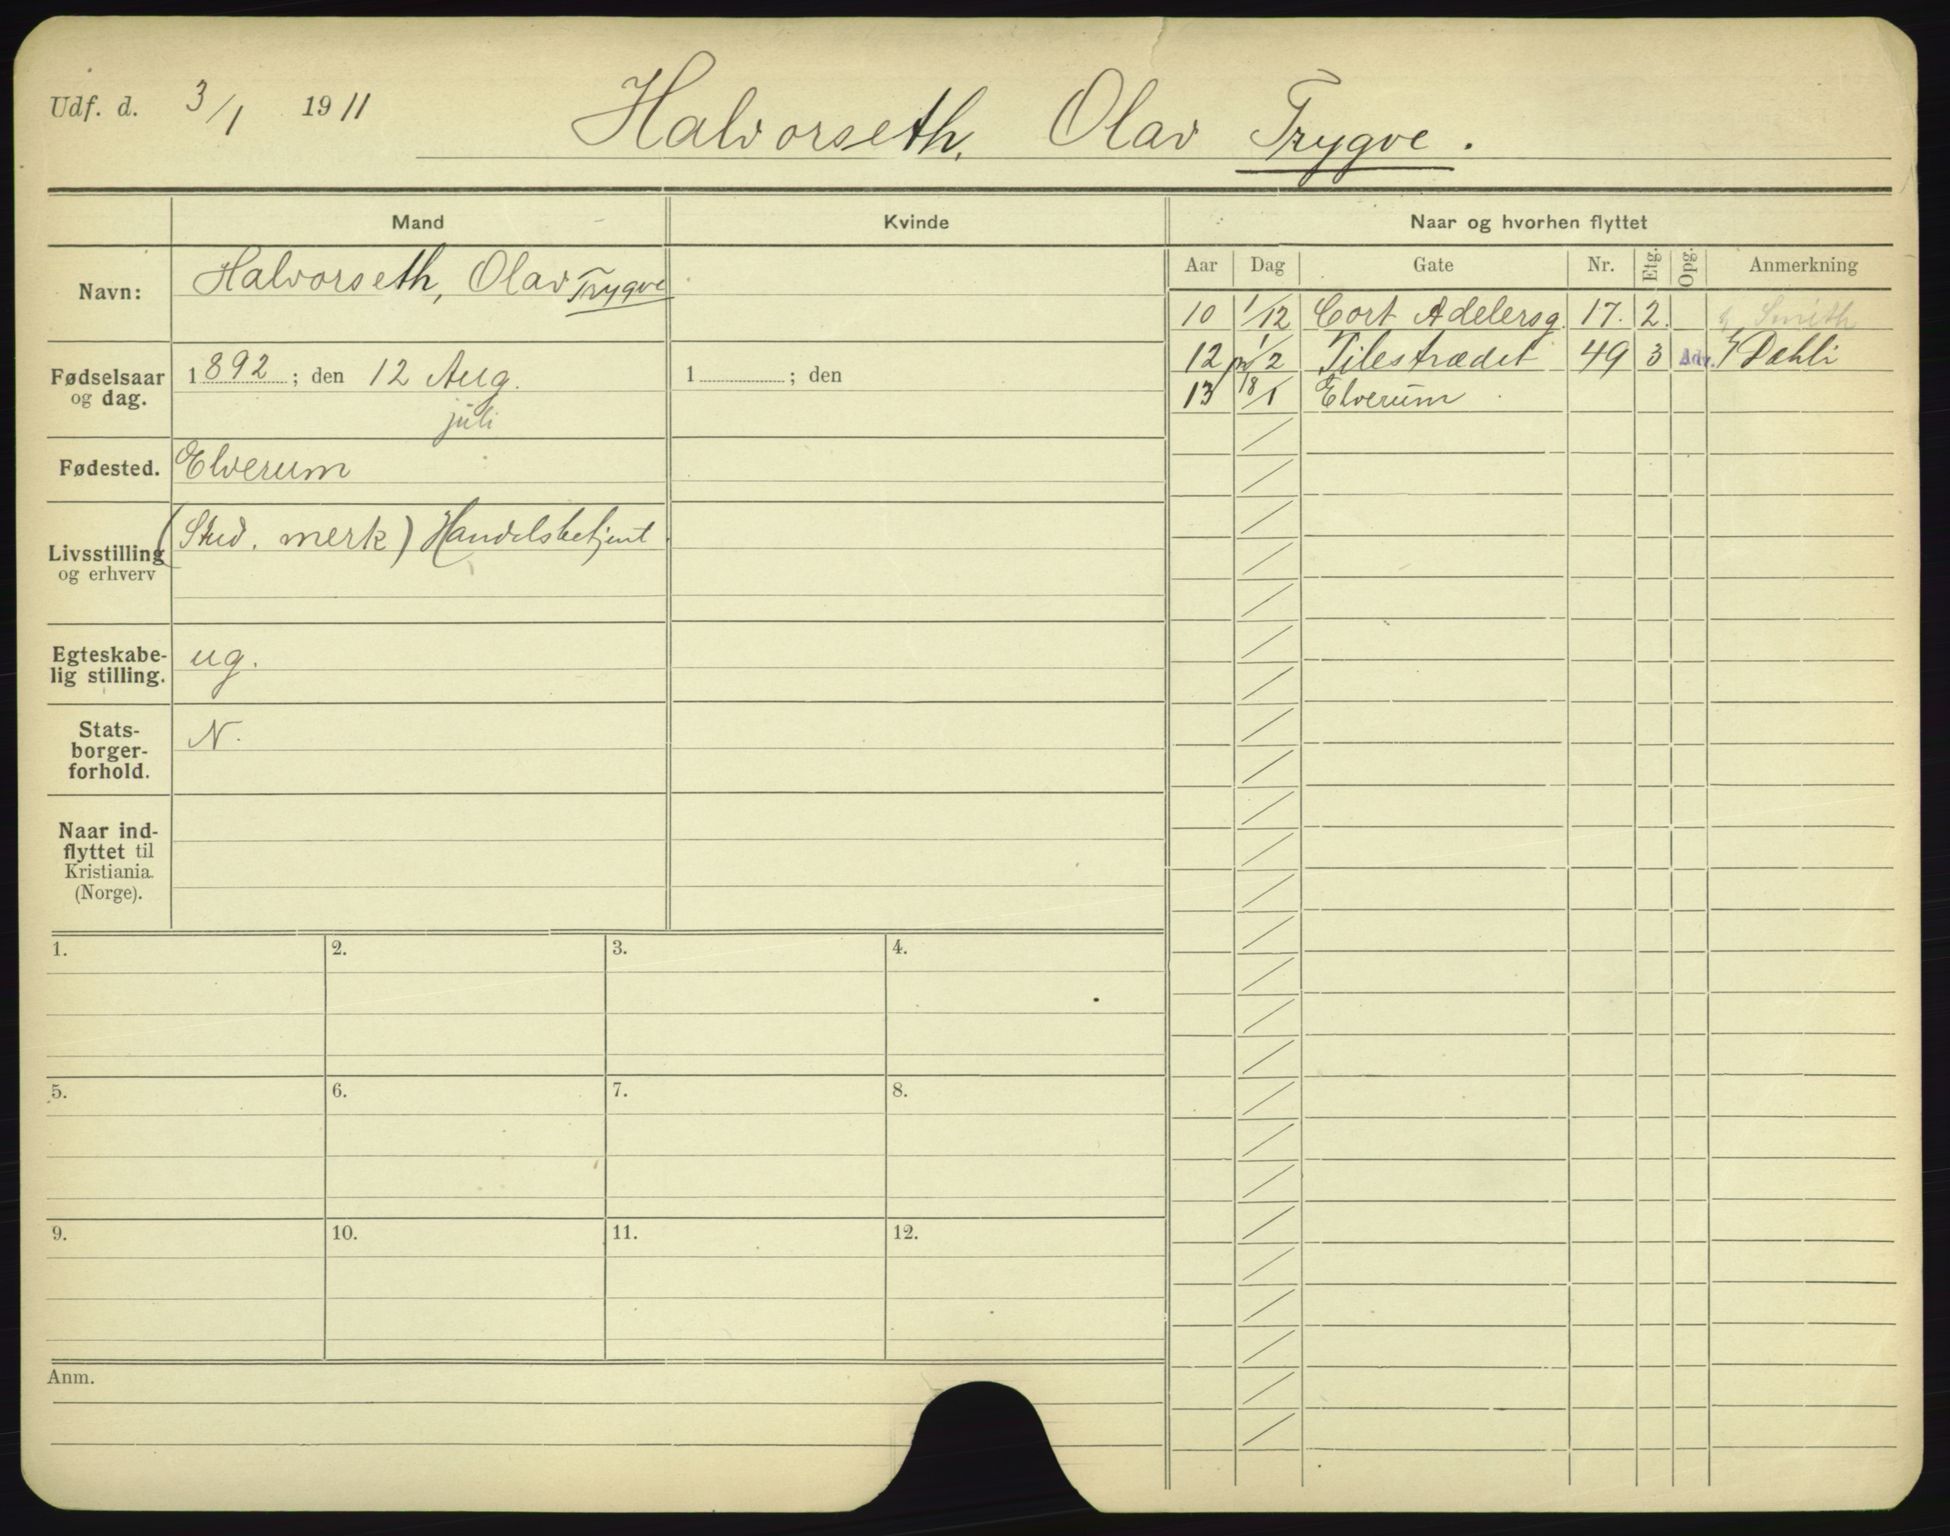 Udf. d. 3/1 1911 Halvorseth, Olav Trygve.
Mand Kvinde Naar og hvorhen flyttet
Navn: Halvorseth, Olav Trygve
Aar Dag Gate Nr. Etg. Opg. Anmerkning
10 1/12 Cort Adelersg. 17. 2. Smith
12 1/2 Pilestrædet 49 3 Adv. Dahli
13 18/1 Elverum
Fødselsaar 1892; den 12 Aug. 1 ; den
og dag.
juli
Fødested. Elverum
(Stud. merk) Handelsbetjent
Livsstilling
og erhverv
Egteskabe- ug.
lig stilling.
Stats- N.
borger-
forhold.
Naar ind-
flyttet til
Kristiania.
(Norge).
1. 2. 3. 4.
5. 6. 7. 8.
9. 10. 11. 12.
Anm.